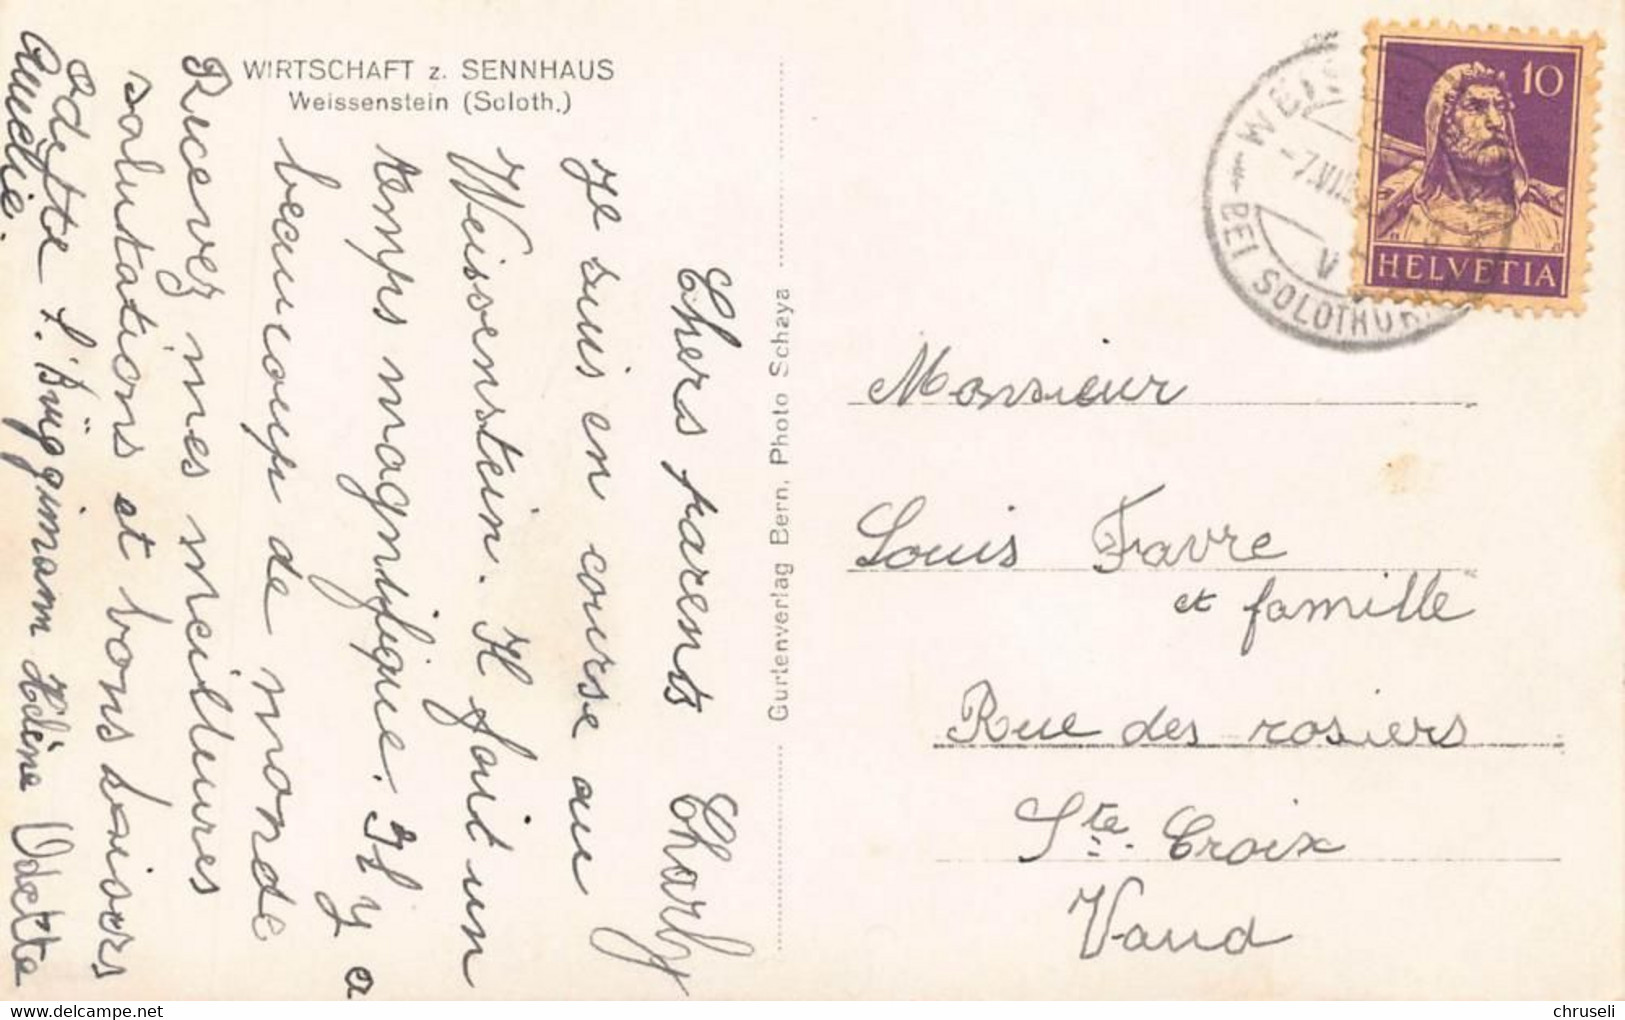 WIRTSCHAFT z. SENNHAUS
Weissenstein (Soloth.)
Chers parents Charly
Je suis en course au
Weissenstein. Il fait un
temps magnifique. Il y a
beaucoup de monde
Recevez mes meilleures
salutations et bons baisers
Odette
Hélène Odette
Gurtenverlag Bern, Photo Schaya
10
HELVETIA
BEI SOLOTHURN
Monsieur
Louis Favre
et famille
Rue des rosiers
Ste. Croix
Vaud
chruseli